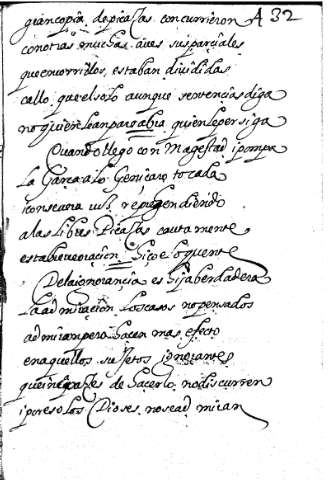 gran copia de picasas concurrieron A 32
con otras muchas aves sus parciales
que en corrillos, estaban divididas
callo, que el solo aunque sentencias diga
no quiere hablar para quien le persiga
Quando llego con Magestad i pompa
La Garza a lo tocada
i con severa vus, reprehendiendo
a las libres Picasas cautamente
esta breve oracion, hico eloquente
De la ignorancia es hija berdadera
La admiracion, los casos no pensados
admiran pero hacen mas efecto
en aquellos sujetos ignorantes
que incapases de hacerlo, no discurren
i por eso los Dioses no se admiran